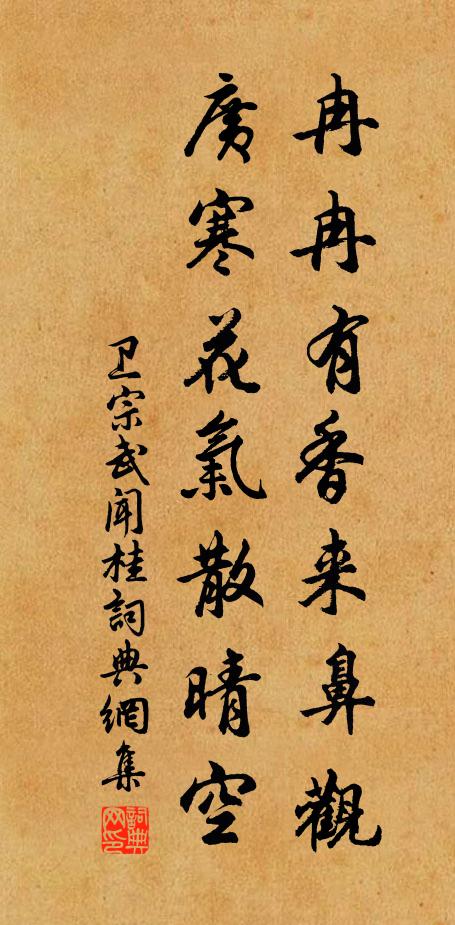 冉冉有香来鼻觀
廣寒花氣散晴空
卫宗武闻桂詞典網集
詞典网印